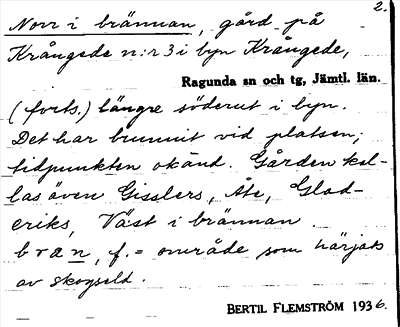 2.
Norr i brännan, gård på
Krångede n:r 3 i byn Krångede,
Ragunda sn och tg, Jämtl. län.
(forts.) längre söderut i byn.
Det har brunnit vid platsen;
tidpunkten okänd. Gården kal-
las även Gisslers, Åte, Glad-
eriks, Väst i brännan.
bran, f. = område som härjats
av skogseld.
BERTIL FLEMSTRÖM 1936.